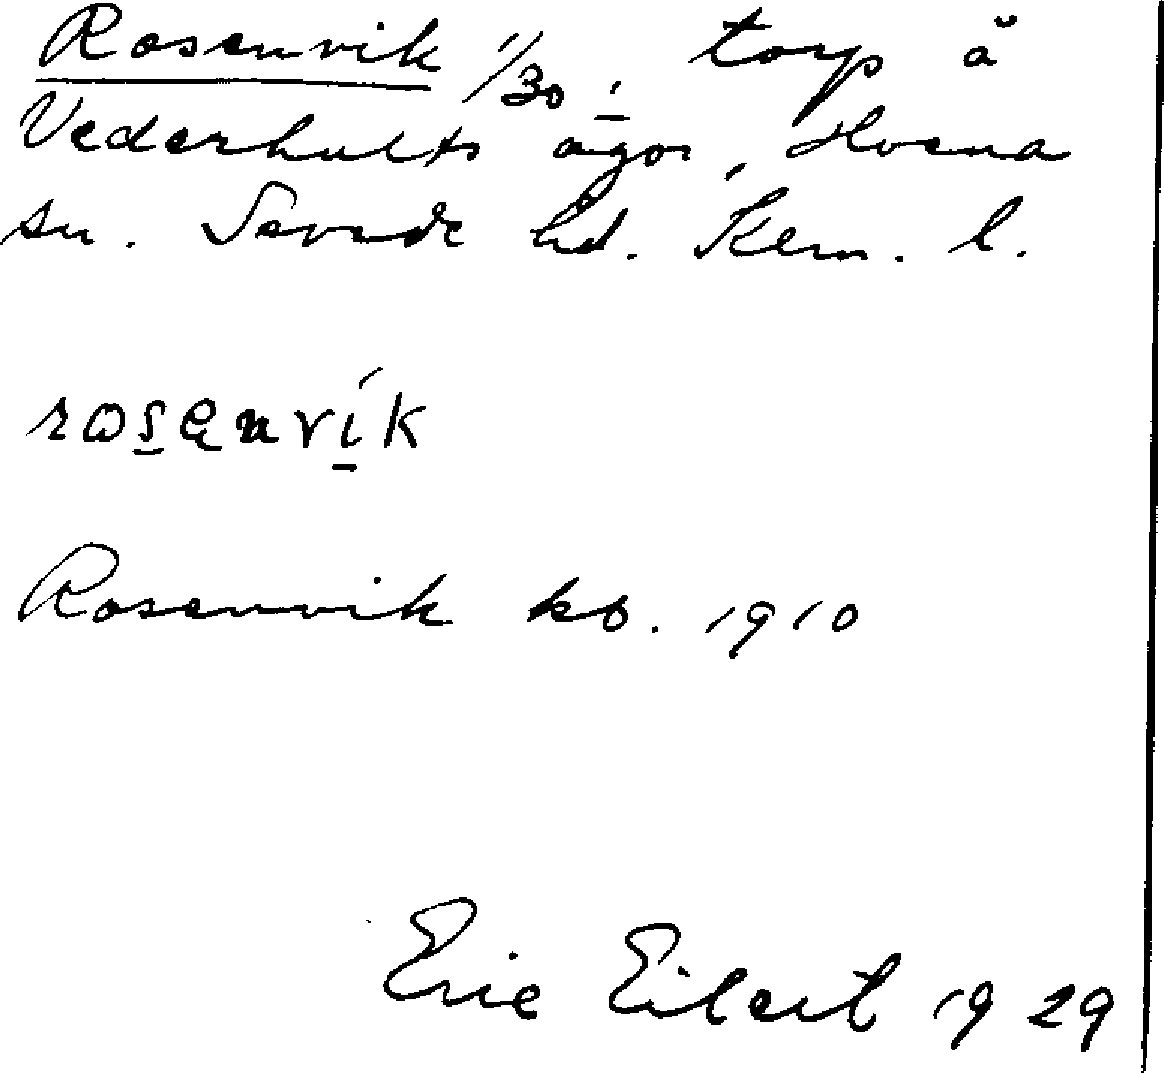 Rosenvik 1/30, torp å
Vederhults ägor, Hvena
sn. Sevede hd. Kem. l.
rosenvik
Rosenvik kb. 1910
Eric Eilert 1929